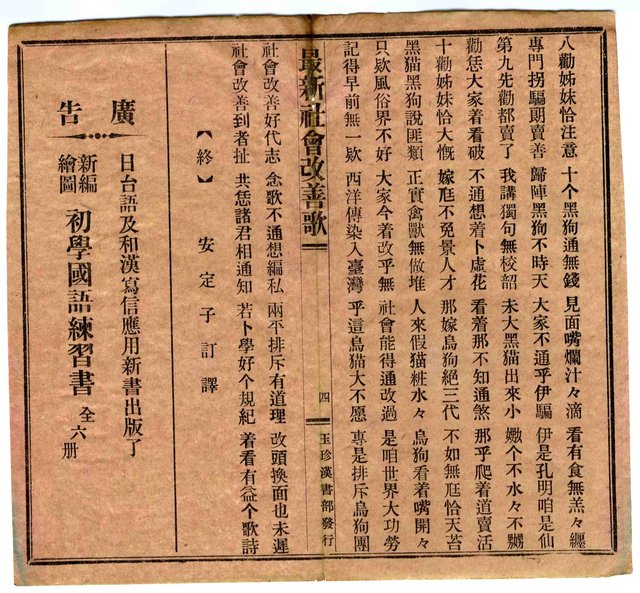 八勸姊妹恰注意 十个黑狗通無錢 見面嘴爛汁々滴 看有食無羔々纏
專門拐騙朗賣善 歸陣黑狗不時天 大家不通乎伊騙 伊是孔明咱是仙
第九先勸都賣了 我講獨句無校韶 未大黑猫出來小 嬓个不水々不嬲
勸恁大家着看破 不通想着卜虛花 看着那不知通煞 那乎爬着道賣活
十勸姊妹恰大慨 嫁尫不免景人才 那嫁烏狗絕三代 不如無尫恰天苔
黑猫黑狗說匪類 正實禽獸無做堆 人來假猫粧水々 烏狗看着嘴開々
只欵風俗界不好 大家今着改乎無 社會能得通改過 是咱世界大功勞
記得早前無一欵 西洋傳染入臺灣 乎這烏猫大不愿 專是排斥烏狗團
最新社會改善歌
四
玉珍漢書部發行
社會改善好代志 念歌不通想編私 兩平排斥有道理 改頭換面也未遲
社會改善到者扯 共恁諸君相通知 若卜學好个規紀 着看有益个歌詩
【終】 安定子訂譯
廣告
日台語及和漢寫信應用新書出版了
新編繪圖 初學國語練習書 全六册